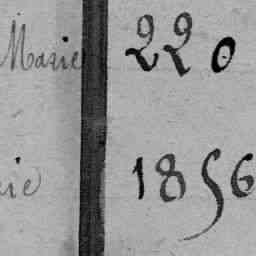 Marie 220
1856